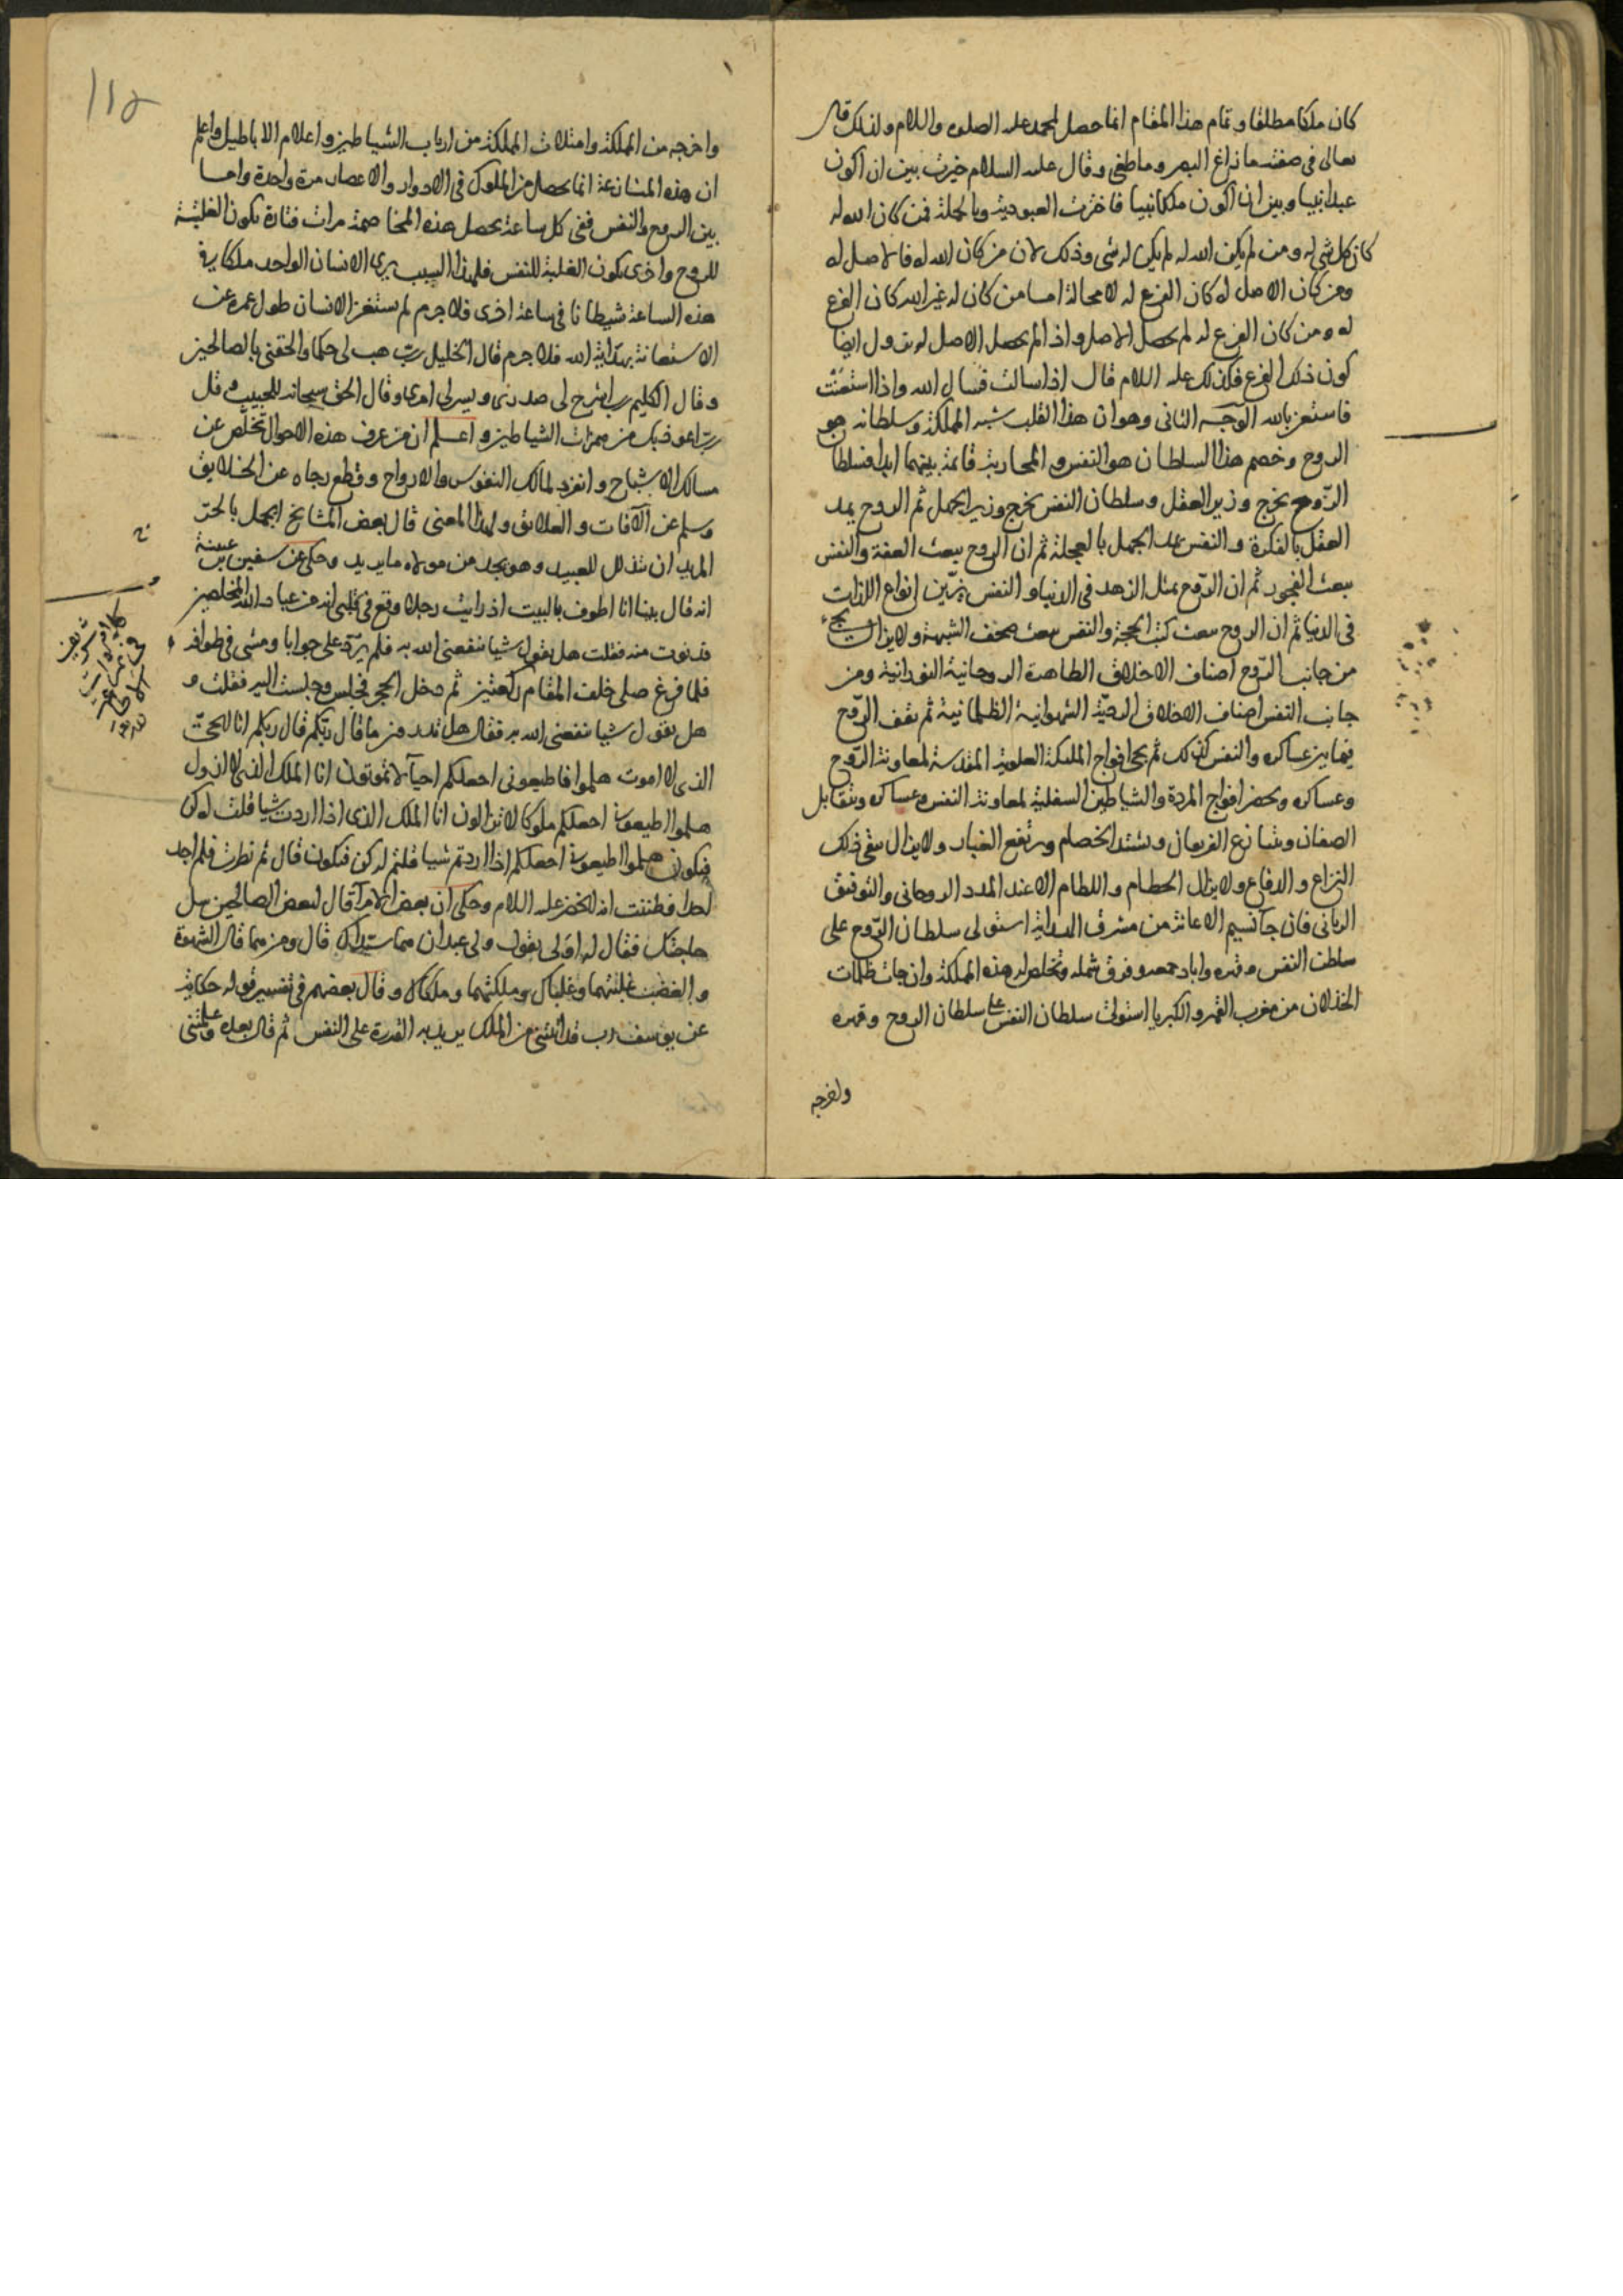 كان ملكا مطلقا وتمام هذا المقام انما حصل لمحمد عليه الصلوة والسلام ولذلك قال
تعالى في صفته ما زاغ البصر وما طغى وقال عليه السلام خيرت بين ان اكون
عبدا نبيا وبين ان اكون ملكا نبيا فاخترت العبودية وبالجملة فمن كان الله له
كان كل شي له ومن لم يكن الله له لم يكن له شي وذلك لان من كان الله له فالاصل له
ومن كان الاصل له كان الفرع له لا محالة اما من كان له غير الله كان الفرع
له ومن كان الفرع له لم يحصل الاصل واذا لم يحصل الاصل له يزول ايضا
كون ذلك الفرع فلذلك عليه السلام قال اذا سالت فسال الله واذا استعنت
فاستعن بالله الوجه الثاني وهو ان هذا القلب شبه المملكة وسلطانه هو
الروح وخصم هذا السلطان هو النفس والمحاربة قائمة بينهما ابدا فسلطان
الروح يخرج وزير العقل وسلطان النفس يخرج وزير الجهل ثم الروح يمد
العقل بالفكرة والنفس يمد الجهل بالعجلة ثم ان الروح يبعث العفة والنفس
يبعث الفجور ثم ان الروح يمثل الزهد في الدنيا والنفس يزين انواع اللذات
في الدنيا ثم ان الروح يبعث كتب الحجة والنفس يبعث صحف الشبهة ولا يزال يجيء
من جانب الروح اصناف الاخلاق الطاهرة الروحانية النورانية ومن
جانب النفس اصناف الاخلاق الردية الشهوانية الظلمانية ثم يقف الروح
فيما بين عساكره والنفس كذلك ثم يجي افواج الملئكة العلوية المقدسة لمعاونة الروح
وعساكره ويحضر افواج المردة والشياطين السفلية لمعاونة النفس وعساكره ويتقابل
الصفان ويتنازع الفريقان ويشتد الخصام ويرتفع الغبار ولا يزال يبقى ذلك
النزاع والدفاع ولا يزال الحطام واللطام الا عند المدد الروحاني والتوفيق
الرباني فان جا نسيم الاعانة من مشرق الهداية استولى سلطان الروح على
سلطان النفس وقهره واباد جمعه وفرق شمله وتخلص له هذه المملكة وان جات ظلمات
الخذلان من مغرب القهر والكبريا استولت سلطان النفس على سلطان الروح وقهره
واخرجه
115
واخرجه من المملكة وامتلات المملكة من ارباب الشياطين واعلام الاباطيل واعلم
ان هذه المنازعة انما يحصل من الملوك في الادوار والاعصار مرة واحدة واما
بين الروح والنفس ففي كل ساعة يحصل هذه المخاصمة مرات فتارة يكون الغلبة
للروح واخرى يكون الغلبة للنفس فلهذا السبب يرى الانسان الواحد ملكا في
هذه الساعة شيطانا في ساعة اخرى فلا جرم لم يستغن الانسان طول عمره عن
الاستعانة بهداية الله فلا جرم قال الخليل رب هب لي حكما والحقني بالصالحين
وقال الكليم رب اشرح لي صدري ويسر لي امري وقال الحق سبحانه للحبيب وقل
رب اعوذ بك من همزات الشياطين واعلم ان من عرف هذه الاحوال تخلص عن
مسالك الاشباح وانفرد لمالك النفوس والارواح وقطع رجاه عن الخلايق
وسلم عن الآفات والعلايق ولهذا المعنى قال بعض المشايخ ايجمل بالحر
المريد ان يتذلل للعبيد وهو يجد من مولاه ما يريد وحكي عن سفين بن عيينة
انه قال بينا انا اطوف بالبيت اذ رايت رجلا وقع في قلبي انه من عباد الله المخلصين
فدنوت منه فقلت هل يقول شيا ينفعني الله به فلم يرد علي جوابا ومشى في طوافه
فلما فرغ صلى خلف المقام ركعتين ثم دخل الحجر فجلس وجلست اليه فقلت
هل يقول شيا ينفعني الله به فقال هل تدرون ما قال ربكم قال ربكم انا الحي
الذي لا اموت هلموا فاطيعوني اجعلكم احيآ لا تموتون انا الملك الذي لا ازول
هلموا اطيعوني اجعلكم ملوكا لا تزالون انا الملك الذي اذا اردت شيا قلت له كن
فيكون هلموا اطيعوني اجعلكم اذا اردتم شيا قلتم له كن فيكون قال ثم نظرت فلم اجد
احدا فظننت انه الخضر عليه السلام وحكي ان بعض الامرآ قال لبعض الصالحين سل
حاجتك فقال له اولي يقول ولي عبدان هما سيداك قال ومن هما قال الشهوة
والغضب غلبتهما وغلباك وملكتهما وملكاك وقال بعضهم في تفسير قوله حكاية
عن يوسف رب قد اتيتني من الملك يريد به القدرة على النفس ثم قال بعده وعلمتني